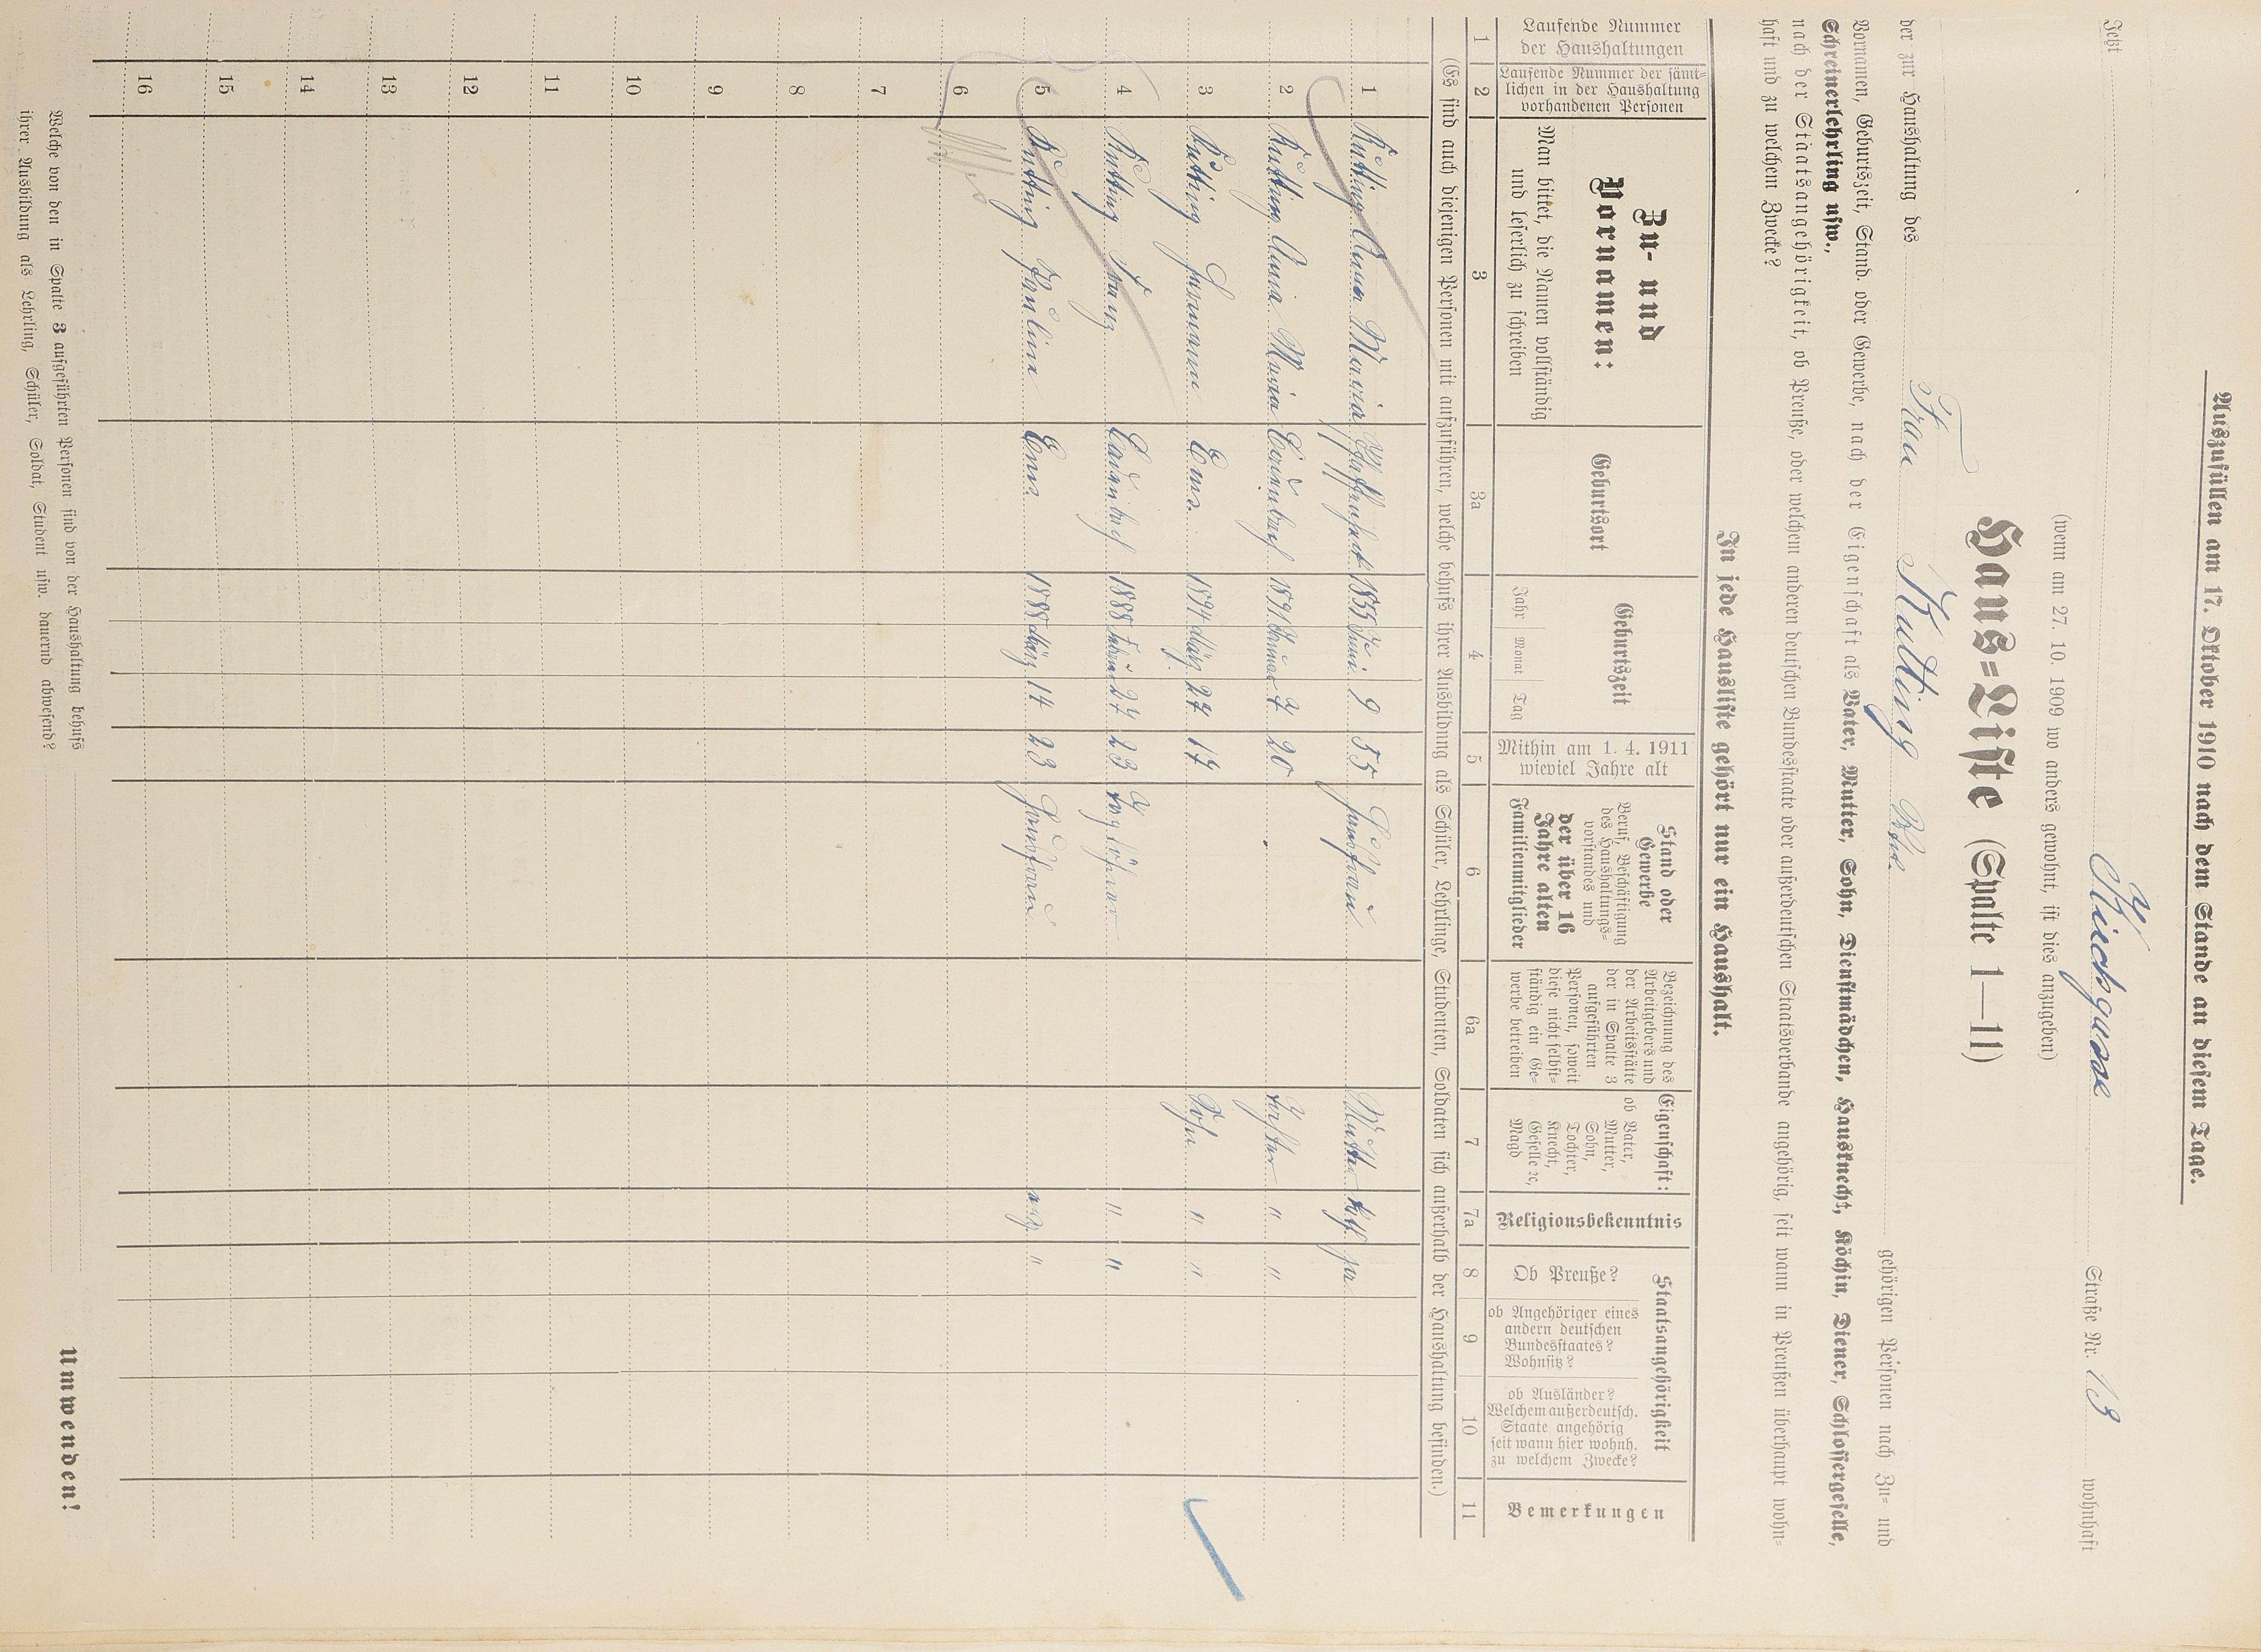 Auszufüllen am 17. Oktober 1910 nach dem Stande an diesem Tage.
Jetzt Kirchgasse Straße Nr. 13 wohnhaft
(wenn am 27. 10. 1909 wo anders gewohnt, ist dies anzugeben)
Haus=Liste (Spalte 1—11)
der zur Haushaltung des Frau Kutting gehörigen Personen nach Zu= und
Vornamen, Geburtszeit, Stand oder Gewerbe, nach der Eigenschaft als Vater, Mutter, Sohn, Dienstmädchen, Hausknecht, Köchin, Diener, Schlossergeselle,
Schreinerlehrling usw.,
nach der Staatsangehörigkeit, ob Preuße, oder welchem anderen deutschen Bundesstaate oder außerdeutschen Staatsverbande angehörig, seit wann in Preußen überhaupt wohn=
haft und zu welchem Zwecke?
In jede Hausliste gehört nur ein Haushalt.
Laufende Nummer
der Haushaltungen
Laufende Nummer der sämt=
lichen in der Haushaltung
vorhandenen Personen
Zu- und
Vornamen:
Man bittet, die Namen vollständig
und leserlich zu schreiben
Geburtsort
Geburtszeit
Jahr Monat Tag
Mithin am 1. 4. 1911
wieviel Jahre alt
Stand oder
Gewerbe
Beruf, Beschäftigung
des Haushaltungs=
vorstandes und
der über 16
Jahre alten
Familienmitglieder
Bezeichnung des
Arbeitgebers und
der Arbeitsstätte
der in Spalte 3
aufgeführten
Personen, soweit
diese nicht selbst=
ständig ein Ge=
werbe betreiben
Eigenschaft:
ob Vater,
Mutter,
Sohn,
Tochter,
Knecht,
Geselle ꝛc,
Magd
Religionsbekenntnis
Staatsangehörigkeit
Ob Preuße?
ob Angehöriger eines
andern deutschen
Bundesstaates?
Wohnsitz?
ob Ausländer?
Welchem außerdeutsch.
Staate angehörig
seit wann hier wohnh.
zu welchem Zwecke?
Bemerkungen
1 2 3 3a 4 5 6 6a 7 7a 8 9 10 11
(Es sind auch diejenigen Personen mit aufzuführen, welche behufs ihrer Ausbildung als Schüler, Lehrlinge, Studenten, Soldaten sich außerhalb der Haushaltung befinden.)
1 Kutting Anna Maria 1855 Juni 9 55 Hausfrau Mutter kath. ja
2 Kutting Anna Maria 1891 Januar 7 20 Tochter " "
3 Kutting Hermann Ems 1894 März 27 17 Sohn " "
4 Kutting Franz 1888 Februar 27 23 Taglöhner " "
5 Kutting Paulina Ems 1888 März 14 23 Hausfrau evg. "
6
7
8
9
10
11
12
13
14
15
16
Welche von den in Spalte 3 aufgeführten Personen sind von der Haushaltung behufs
ihrer Ausbildung als Lehrling, Schüler, Soldat, Student usw. dauernd abwesend?
Umwenden!